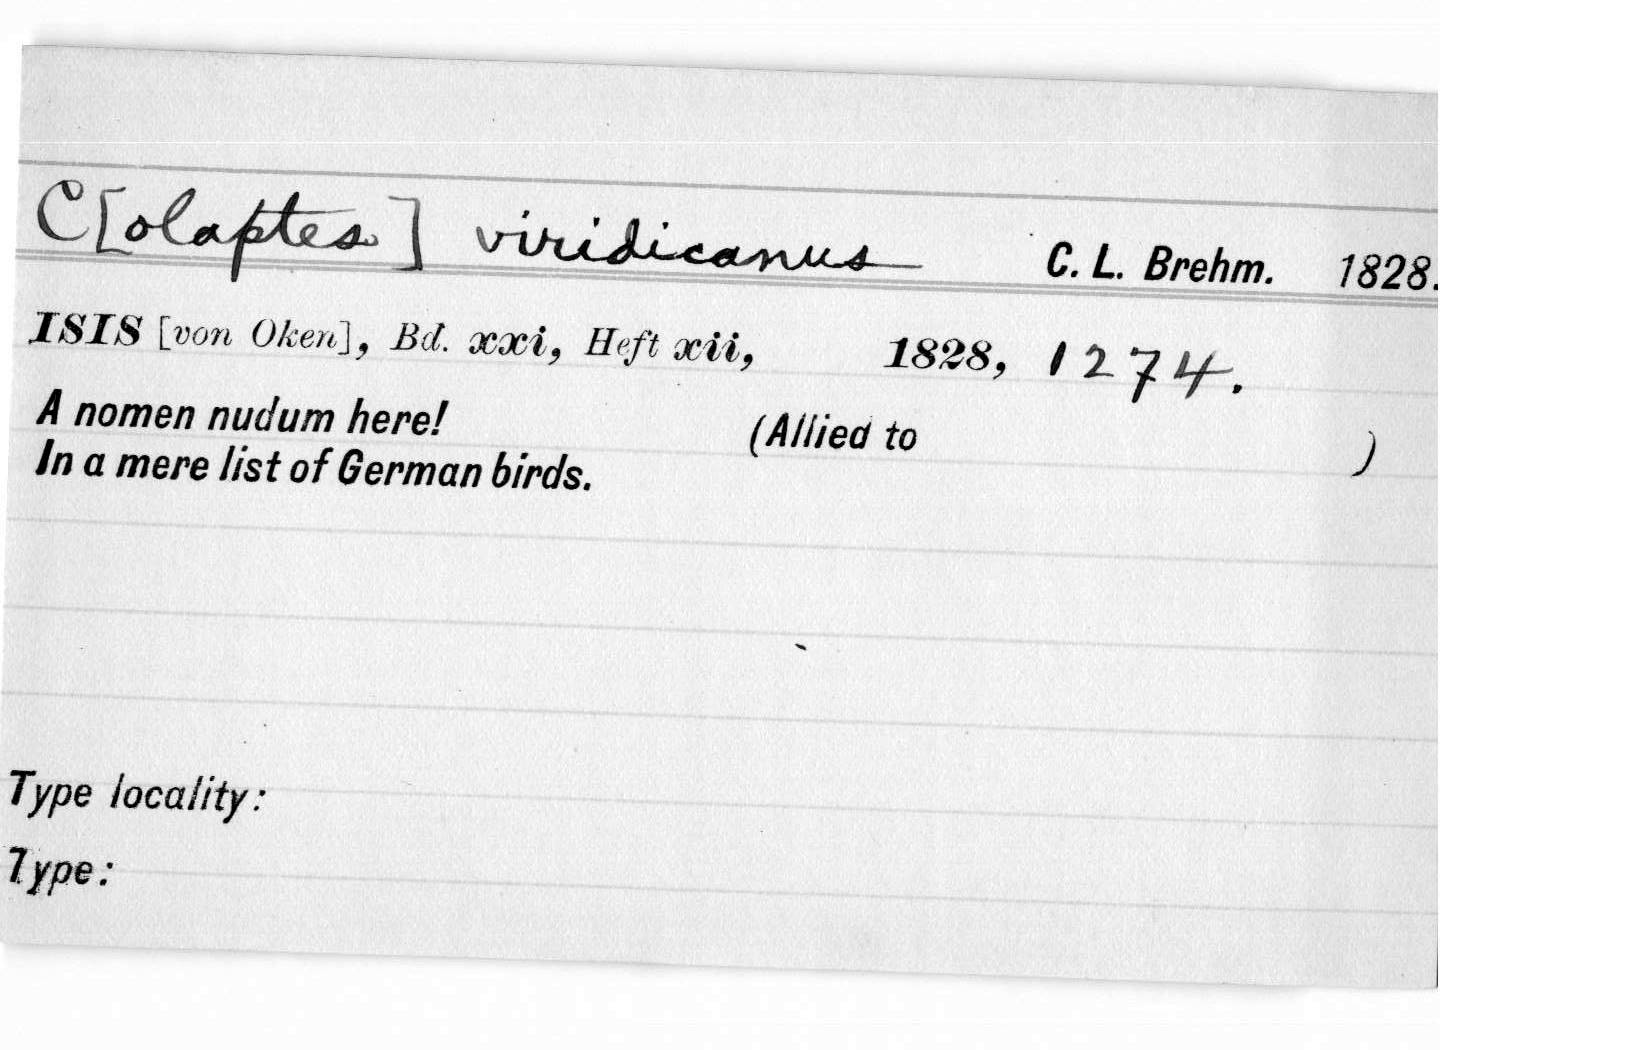 C[olaptes] viridicanus C. L. Brehm. 1828.
ISIS [von Oken], Bd. xxi, Heft xii, 1828, 1274.
A nomen nudum here! (Allied to )
In a mere list of German birds.
Type locality:
Type: